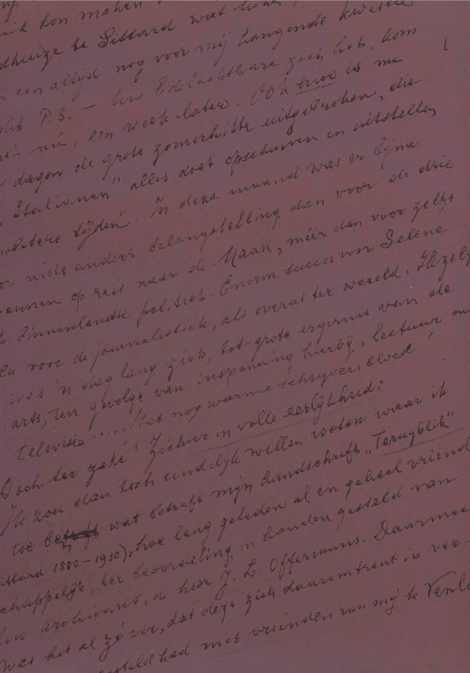 ik kon maken
dhuize te Sittard wat
een altijd nog voor mij hangende kwestie
dit P.S. – Uw Edelachtbare zoo lieb, kom
nú, een week later. Ook hier is me
dagen de grote zomerhitte uitgebroken, die
Italianen" alles doet opschuiven en uitstellen
"betere tijden". In deze maand was er bijna
niets anders belangstelling dan voor de drie
mannen op reis naar de Maan, méér dan voor zelfs
binnenlandse politiek. Enorm succes von Selene
voor de journalistiek, als overal ter wereld. Ikzelf
was 'n dag lang ziek, tot grote ergernis van de
arts, ten gevolge van inspanning hierbij, lectuur en
televisie..... Het nog warme schrijversbloed!
Doch ter zake! Ziehier in volle eerlijkheid:
Ik zou dan toch eindelijk willen weten waar ik
toe wat betreft mijn handschrift „Terugblik"
(Sittard 1880–1930), hoe lang geleden al en geheel vriend
schappelijk, ter beoordeling in handen gesteld van
Uw Archivaris, de heer J. L. Offermans. Daarmee
was het al zóver, dat deze zich daaromtrent in ver-
steld had met vrienden van mij te Venlo